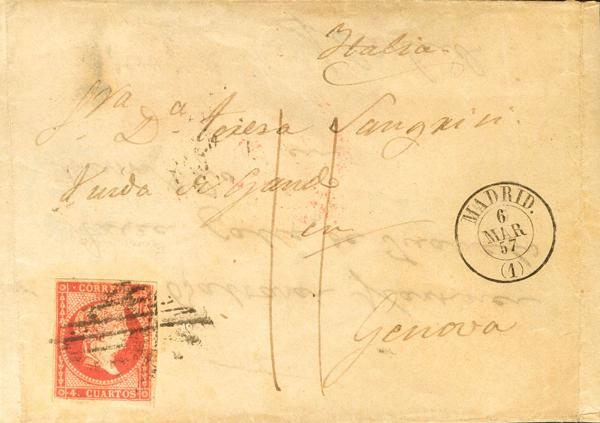 Italia
Sra Da Teresa Sangrini
Viuda di
en
Genova
MADRID.
6
MAR
57
(1)
CORREOS
4. CUARTOS